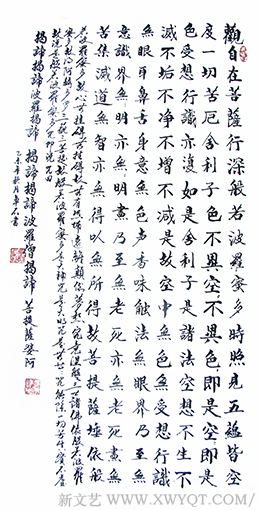 觀自在菩薩行深般若波羅蜜多時照見五蘊皆空
度一切苦厄舍利子色不異空空不異色色即是空空即是
色受想行識亦復如是舍利子是諸法空想不生不
滅不垢不淨不增不減是故空中無色無受想行識
無眼耳鼻舌身意無色聲香味觸法無眼界乃至無
意識界無明亦無無明盡乃至無老死亦無老死盡無
苦集滅道無智亦無得以無所得故菩提薩埵依般
若波羅蜜多故心無掛礙無掛礙故無有恐怖遠離顛倒夢想究竟涅槃三世諸佛依般若波羅
蜜多故得阿耨多羅三藐三菩提故知般若波羅蜜多是大神咒是大明咒是無上咒是無等等咒能除一切苦真實不虛
故說般若波羅蜜多咒即說咒曰
揭諦揭諦波羅揭諦 揭諦揭諦波羅僧揭諦 菩提薩婆阿
乙未年秋月
新文艺 / WWW.XWYQT.COM